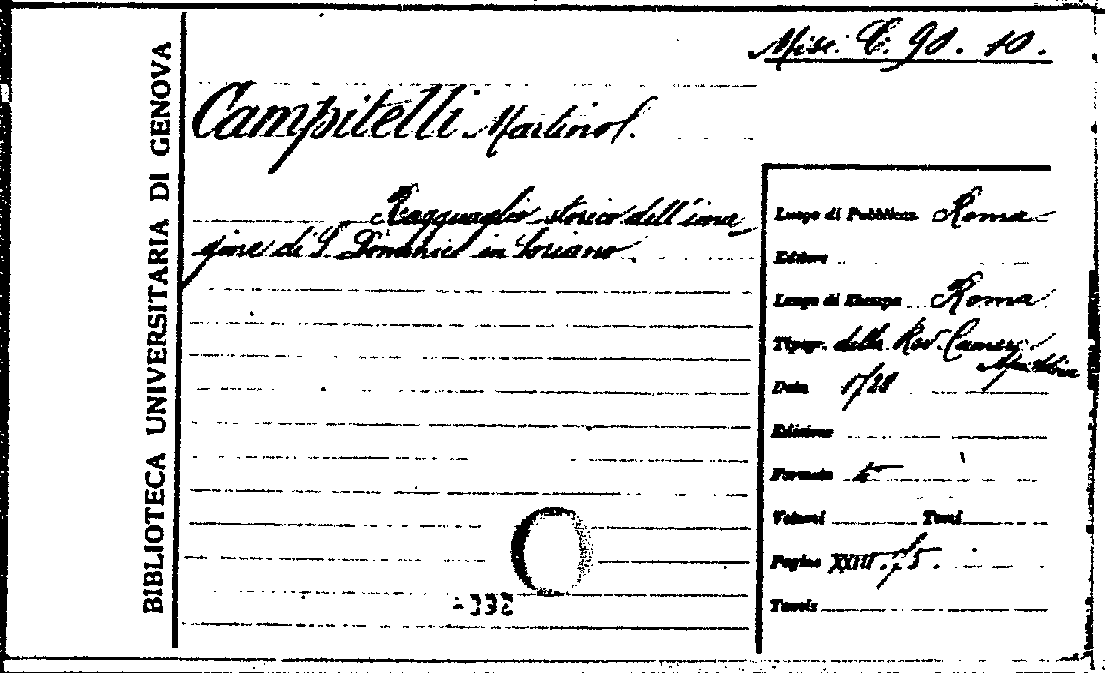 BIBLIOTECA UNIVERSITARIA DI GENOVA
Misc. C. 90. 10.
Campitelli Martino
Ragguaglio storico dell'ima
gine di S. Domenico in Soriano
Luogo di Pubblicaz. Roma
Editore
Luogo di Stampa Roma
Tipogr. della Rev. Camera
Data
Edizione
Formato
Volumi Tomi
Pagine XXIII
Tavole